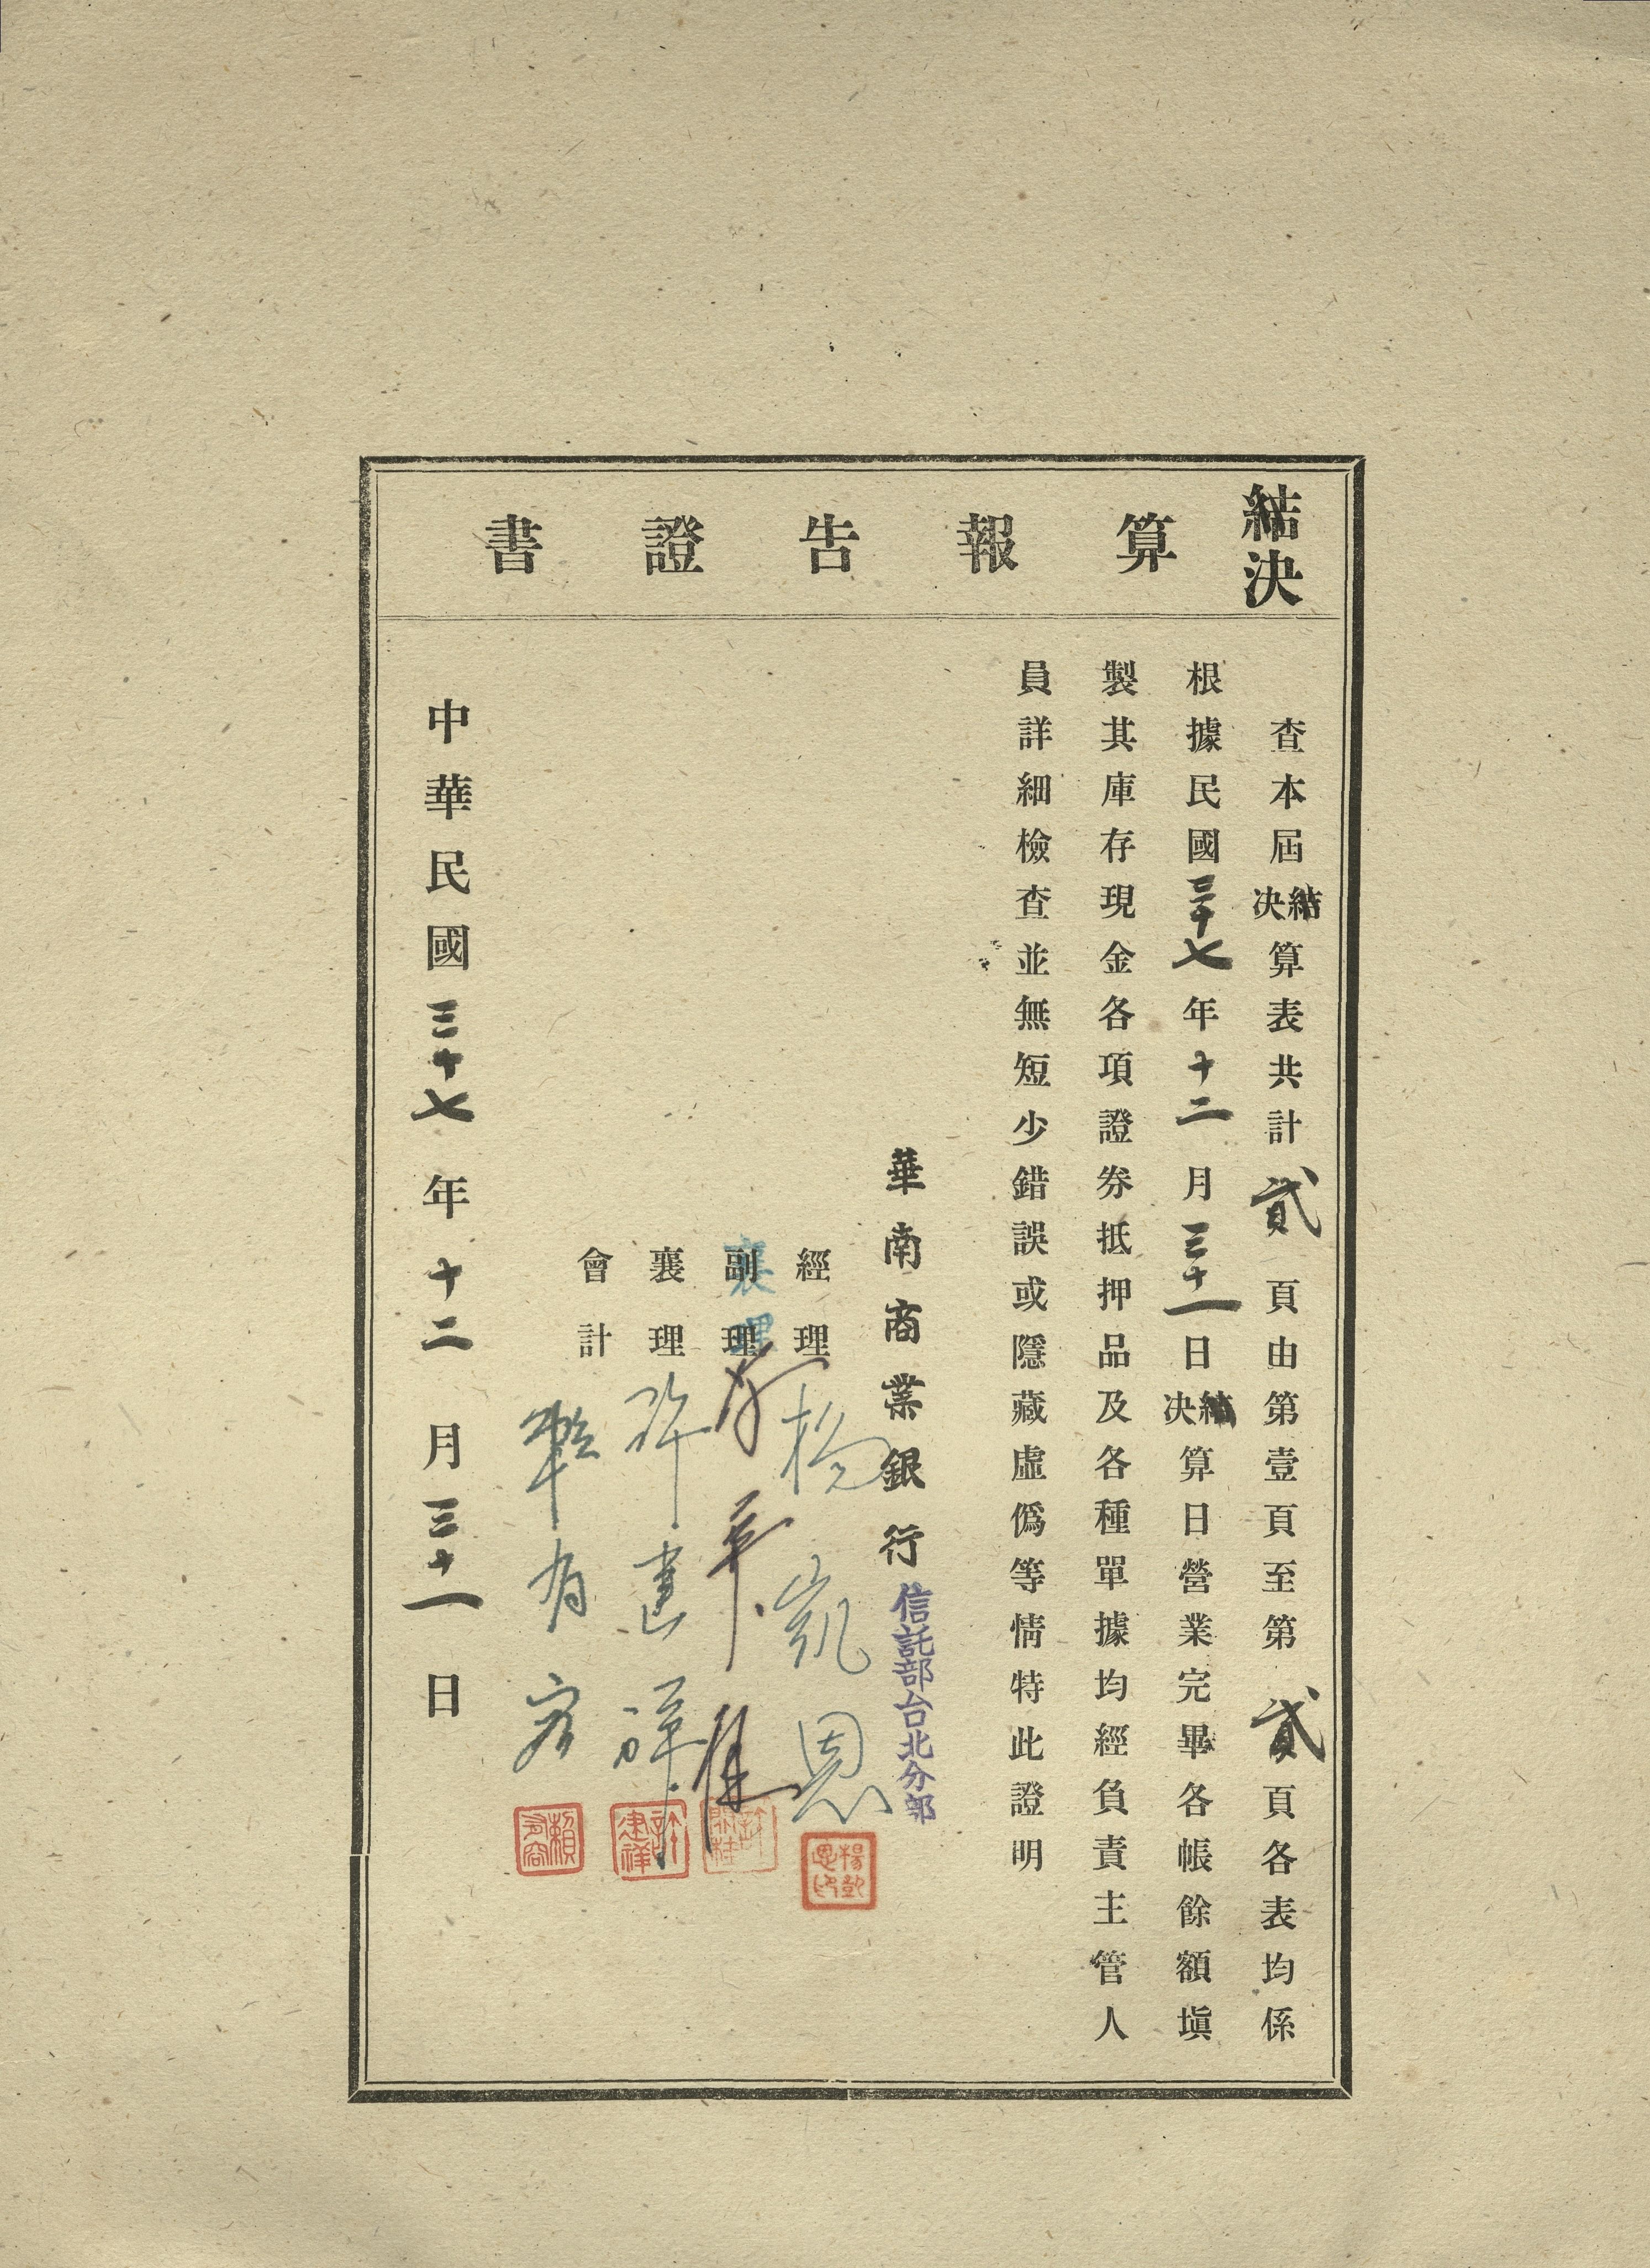 結決算報告證書
查本屆結決算表共計貳頁由第壹頁至第貳頁各表均係
根據民國三十七年十二月三十一日結決算日營業完畢各帳餘額塡
製其庫存現金各項證券抵押品及各種單據均經負責主管人
員詳細檢查並無短少錯誤或隱藏虛僞等情特此證明
華南商業銀行信託部台北分部
經理 楊凱恩
楊凱恩印
副理 襄理 許
許
襄理 許建祥
許建祥
會計 賴有容
賴有容
中華民國三十七年十二月三十一日